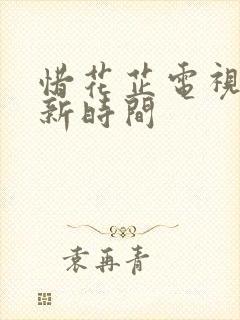 惜花芷電視
新時間
袁再青